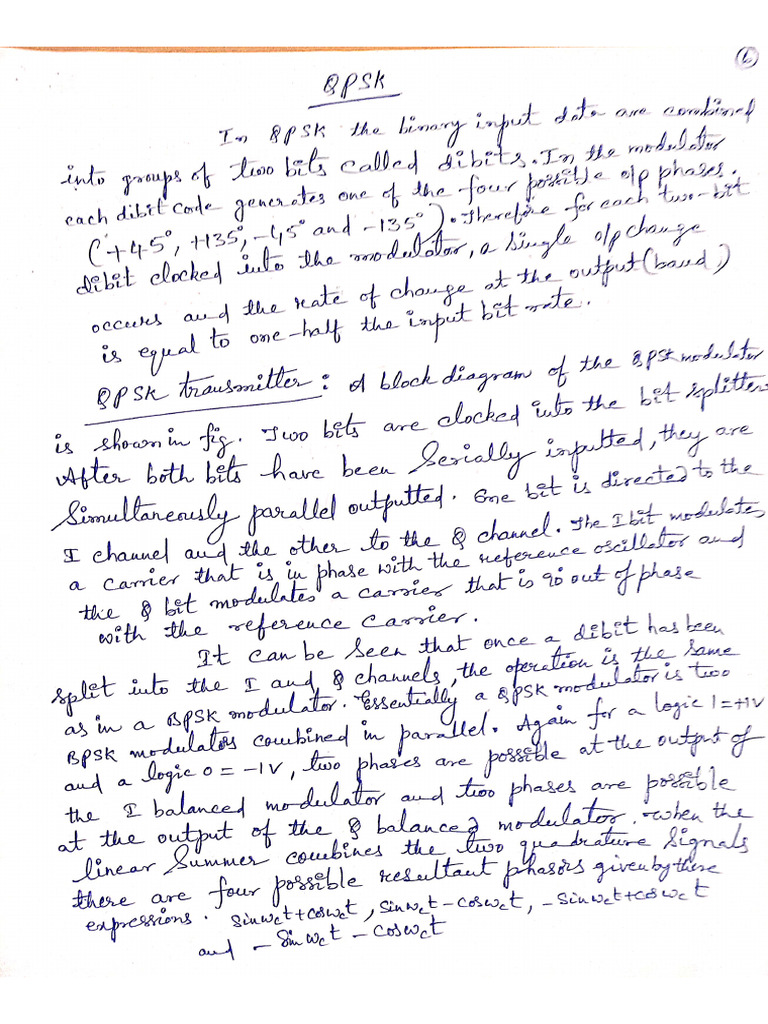 6
QPSK
In QPSK the binary input data are combined
into groups of two bits called dibits. In the modulator
each dibit code generates one of the four possible o/p phases.
(+45°, +135°, -45° and -135°). Therefore for each two-bit
dibit clocked into the modulator, a single o/p change
occurs and the rate of change at the output (baud,)
is equal to one-half the input bit rate.
QPSK transmitter: A block diagram of the QPSK modulator
is shown in fig. Two bits are clocked into the bit splitter.
After both bits have been Serially inputted, they are
Simultaneously parallel outputted. One bit is directed to the
I channel and the other to the Q channel. The I bit modulates
a carrier that is in phase with the reference oscillator and
the Q bit modulates a carrier that is 90° out of phase
with the reference carrier.
It can be seen that once a dibit has been
split into the I and Q channels, the operation is the same
as in a BPSK modulator. Essentially a QPSK modulator is two
BPSK modulators combined in parallel. Again for a logic 1 = +1V
and a logic 0 = -1V, two phases are possible at the output of
the I balanced modulator and two phases are possible
at the output of the Q balanced modulator. When the
linear Summer combines the two quadrature Signals
there are four possible resultant phasors given by these
expressions. Sinωct+cosωct, Sinωct-cosωct, -Sinωct+cosωct
and -Sinωct - cosωct